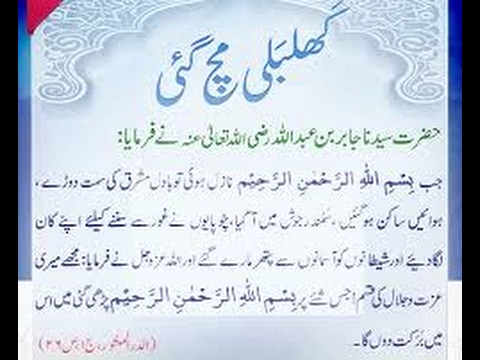 کھلبلی مچ گئی
حضرت سیدنا جابر بن عبداللہ رضی اللہ تعالیٰ عنہ نے فرمایا:
جب بِسْمِ اللهِ الرَّحْمٰنِ الرَّحِيْمِ نازل ہوئی تو بادل مشرق کی سمت دوڑے،
ہوائیں ساکن ہوگئیں، سمندر جوش میں آگیا، چوپایوں نے غور سے سننے کیلئے اپنے کان
لگا دیئے اور شیطانوں کو آسمانوں سے پتھر مارے گئے اور اللہ عزوجل نے فرمایا: مجھے میری
عزت و جلال کی قسم! جس شئے پر بِسْمِ اللهِ الرَّحْمٰنِ الرَّحِيْمِ پڑھی گئی میں اس
میں برکت دوں گا۔ (الدر المنثور، ج ۱، ص ۲۶)